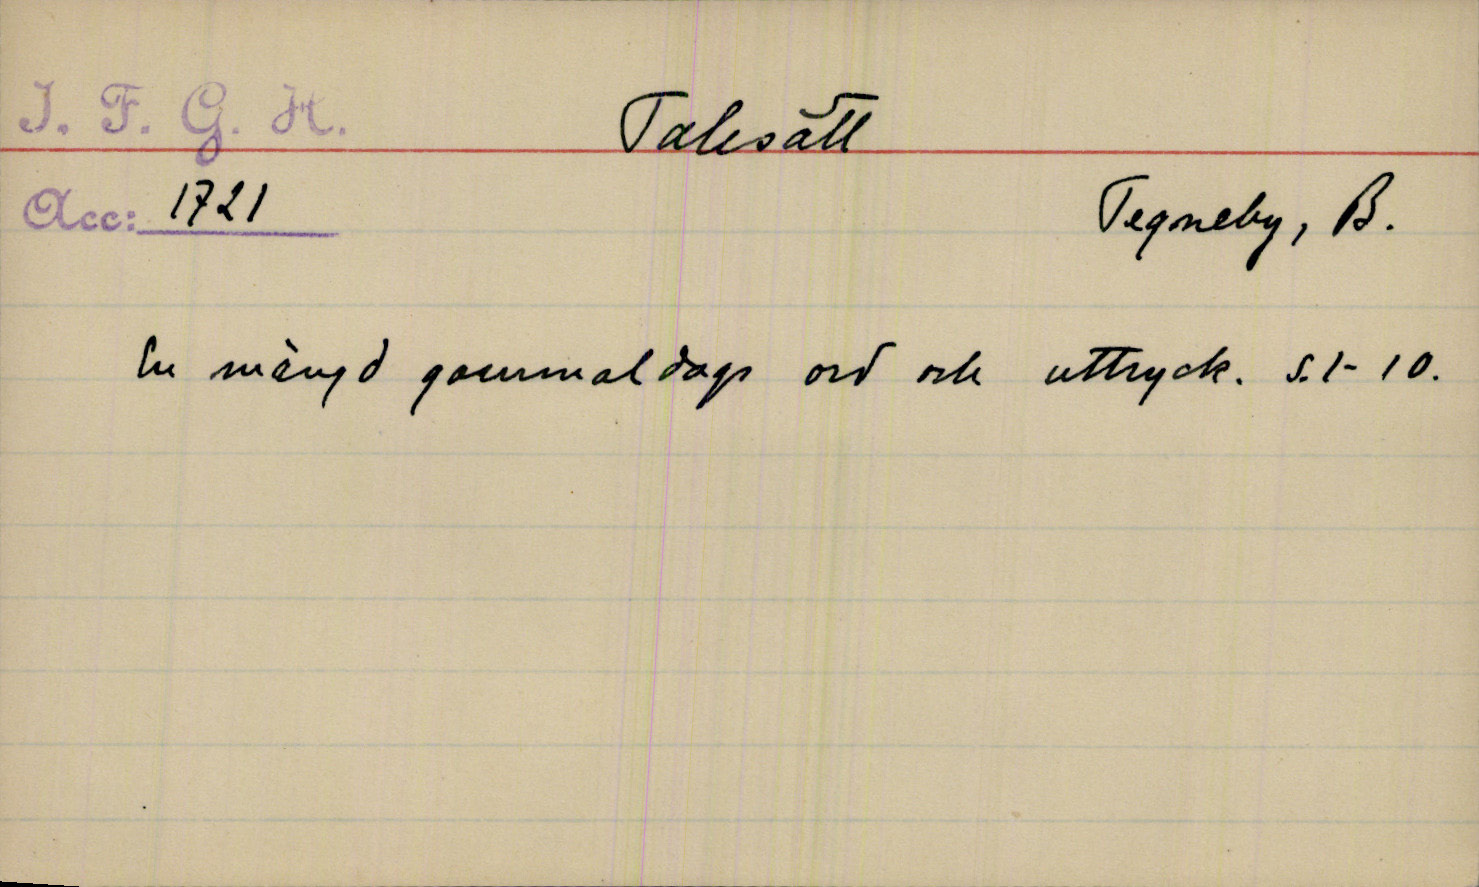 I. F. G. H.
Talesätt
Acc: 1721
Tegneby, B.
En mängd gammaldags ord och uttryck. s. 1-10.